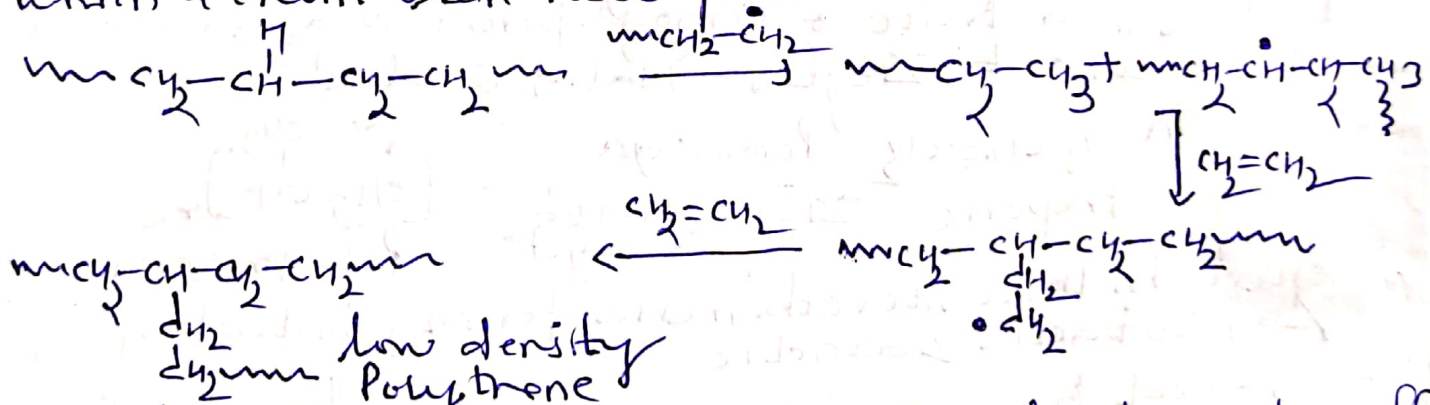 H
~~CH2–CH–CH2–CH2~~ ~~CH2–ĊH2 → ~~CH2–CH3 + ~~CH2–ĊH–CH2–CH3
CH2=CH2
CH2=CH2
~~CH2–CH–CH2–CH2~~ ← ~~CH2–CH–CH2–CH2~~
CH2 CH2
CH2~~ •CH2
low density
Polythene